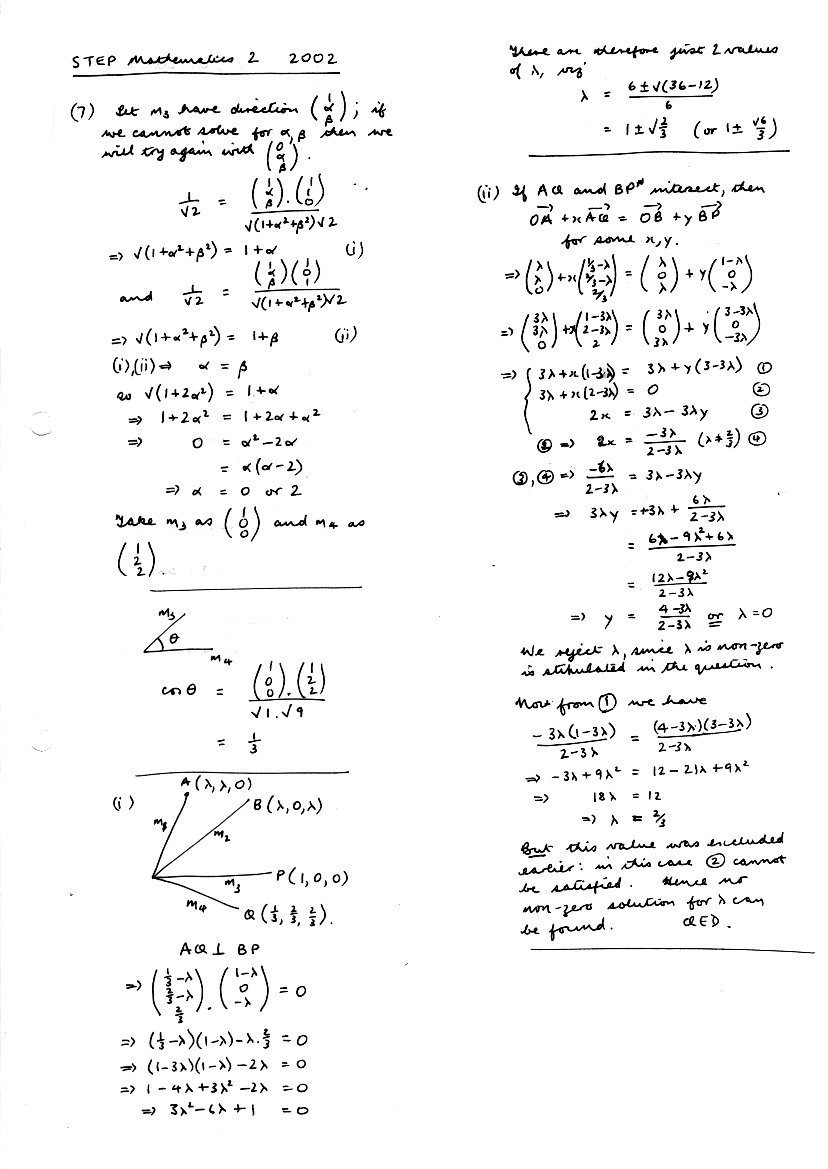 STEP Mathematics 2 2002
(7) Let m₃ have direction (1 α β); if
we cannot solve for α, β then we
will try again with (0 α β).
1/√2 = (1 α β).(1 1 0) / √(1+α²+β²)√2
⇒ √(1+α²+β²) = 1+α (i)
and 1/√2 = (1 α β)(1 0 1) / √(1+α²+β²)√2
⇒ √(1+α²+β²) = 1+β (ii)
(i),(ii) ⇒ α = β
so √(1+2α²) = 1+α
⇒ 1+2α² = 1+2α+α²
⇒ 0 = α²-2α
= α(α-2)
⇒ α = 0 or 2
Take m₃ as (1 0 0) and m₄ as
(1 2 2).
m₃
θ
m₄
cosθ = (1 0 0).(1 2 2) / √1.√9
= 1/3
(i)
A(λ,λ,0)
B(λ,0,λ)
m₂
P(1,0,0)
m₃
m₄
Q(1/3, 2/3, 2/3).
AQ ⊥ BP
⇒ (1/3-λ 2/3-λ 2/3).(1-λ 0 -λ) = 0
⇒ (1/3-λ)(1-λ)-λ.2/3 = 0
⇒ (1-3λ)(1-λ)-2λ = 0
⇒ 1-4λ+3λ²-2λ = 0
⇒ 3λ²-6λ+1 = 0
There are therefore just 2 values
of λ, viz
λ = 6±√(36-12) / 6
= 1±√2/3 (or 1± √6/3)
(ii) If AQ and BP intersect, then
OA + xAQ = OB + yBP
for some x,y.
⇒ (λ λ 0)+x(1/3-λ 2/3-λ 2/3) = (λ 0 λ) + y(1-λ 0 -λ)
⇒ (3λ 3λ 0)+x(1-3λ 2-3λ 2) = (3λ 0 3λ) + y(3-3λ 0 -3λ)
⇒ { 3λ+x(1-3λ) = 3λ+y(3-3λ) ①
3λ+x(2-3λ) = 0 ②
2x = 3λ-3λy ③
② ⇒ x = -3λ/2-3λ (λ≠2/3) ④
③,④ ⇒ -6λ/2-3λ = 3λ-3λy
⇒ 3λy = +3λ + 6λ/2-3λ
= 6λ-9λ²+6λ / 2-3λ
= 12λ-9λ² / 2-3λ
⇒ y = 4-3λ/2-3λ or λ=0
We reject λ, since λ is non-zero
is stipulated in the question.
Now from ① we have
-3λ(1-3λ)/2-3λ = (4-3λ)(3-3λ)/2-3λ
⇒ -3λ+9λ² = 12-21λ+9λ²
⇒ 18λ = 12
⇒ λ = 2/3
But this value was excluded
earlier: in this case ② cannot
be satisfied. Hence no
non-zero solution for λ can
be found. QED.